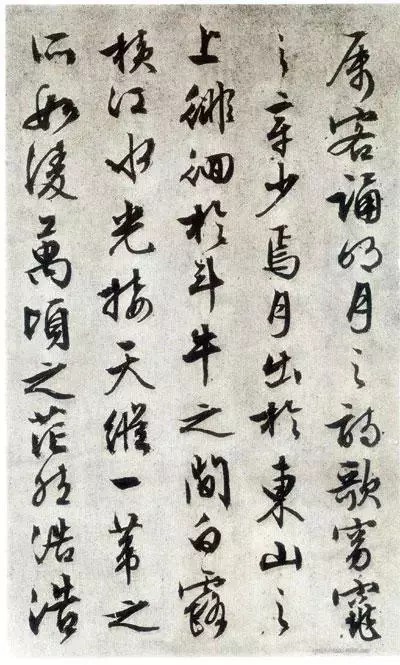 属客誦明月之詩歌窈窕
之章少焉月出於東山之
上徘徊於斗牛之間白露
横江水光接天縱一葦之
所如凌萬頃之茫然浩浩